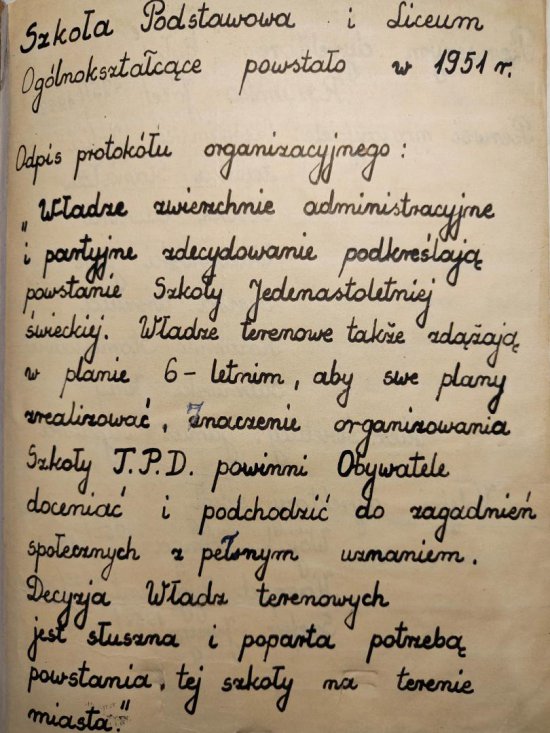 Szkoła Podstawowa i Liceum
Ogólnokształcące powstało w 1951 r.
Odpis protokółu organizacyjnego:
"Władze zwierzchnie administracyjne
i partyjne zdecydowanie podkreślają
powstanie Szkoły Jedenastoletniej
świeckiej. Władze terenowe także zdążają
w planie 6-letnim, aby swe plany
zrealizować, Znaczenie organizowania
Szkoły T.P.D. powinni Obywatele
doceniać i podchodzić do zagadnień
społecznych z pełnym uznaniem.
Decyzja Władz terenowych
jest słuszna i poparta potrzebą
powstania, tej szkoły na terenie
miasta."